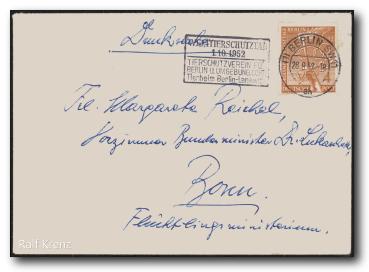 Drucksache
WELTTIERSCHUTZTAG
4.10.1952
TIERSCHUTZVEREIN FÜR
BERLIN U. UMGEBUNG
Tierheim Berlin-Lankwitz
BERLIN SW11
Frl. Margareta Reichel,
Vorzimmer Bundesminister Dr. Lukaschek,
Bonn.
Flüchtlingsministerium.
Ralf Krenz